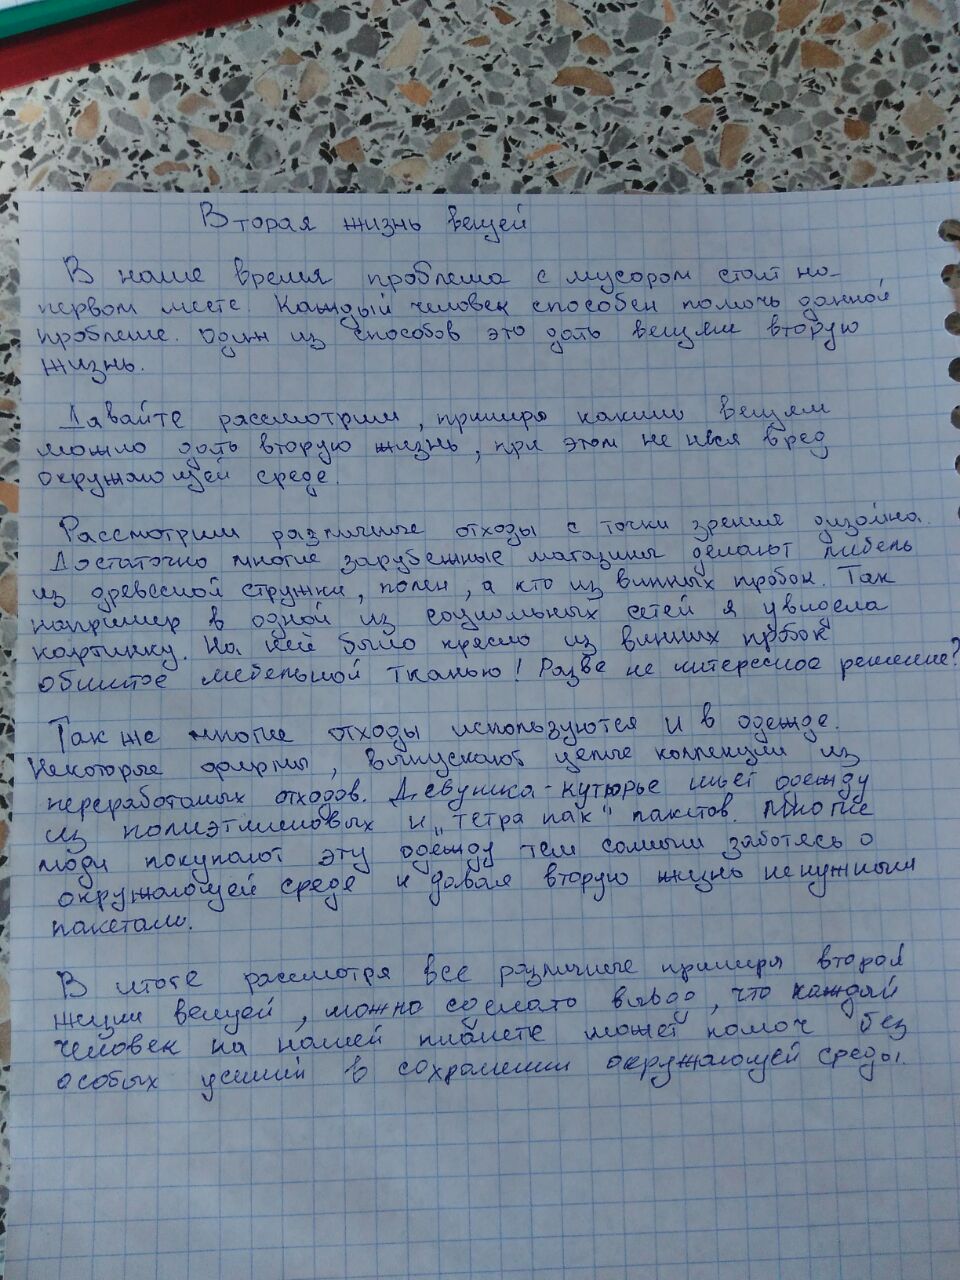 Вторая жизнь вещей
В наше время проблема с мусором стоит на
первом месте. Каждый человек способен помочь данной
проблеме. Один из способов это дать вещам вторую
жизнь.
Давайте рассмотрим, примеры каким вещам
можно дать вторую жизнь, при этом не нася вред
окружающей среде.
Рассмотрим различные отходы с точки зрения дизайна.
Достаточно многие зарубежные магазины делают мебель
из древесной стружки, полен, а кто из винных пробок. Так
например в одной из социальных сетей я увидела
картинку. На ней было кресло из винных пробок
обшитое мебельной тканью! Разве не интересное решение?
Так же многие отходы используются и в одежде.
Некоторые фирмы, выпускают целые коллекции из
переработаных отходов. Девушка-кутюрье шьёт одежду
из полиэтиленовых и "тетра пак" пакетов. Многие
люди покупают эту одежду тем самым заботясь о
окружающей среде и давая вторую жизнь ненужным
пакетам.
В итоге рассмотря все различные примеры второй
жизни вещей, можно сделать вывод, что каждый
человек на нашей планете может помоч без
особых усилий в сохранении окружающей среды.